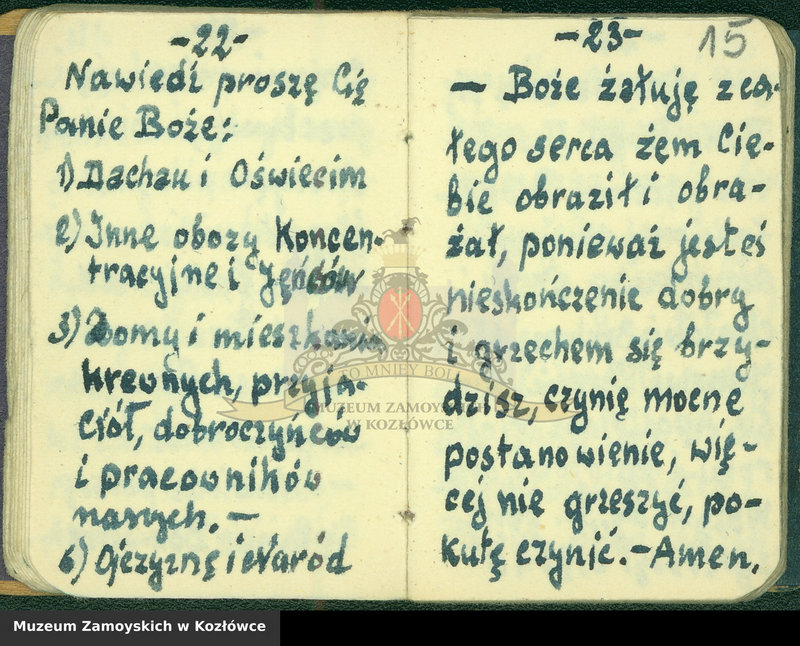 -22-
Nawiedi proszę Cię
Panie Boże:
1) Dachau i Oświecim
2) Inne obozy Koncen-
tracyjne i Jeńców
3) Domy i mieszkania
krewnych, przyja-
ciół, dobroczyńców
i pracowników
naszych. —
6) Ojczyznę i Naród
-23-
15
— Boże żałuję z ca-
łego serca żem Cie-
bie obraził i obra-
żał, ponieważ jesteś
nieskończenie dobry
i grzechem się brzy-
dzisz, czynię mocne
postanowienie, wię-
cej nie grzeszyć, po-
kutę czynić. — Amen.
TO MNIEY BOLI
MUZEUM ZAMOYSKICH
W KOZŁÓWCE
Muzeum Zamoyskich w Kozłówce